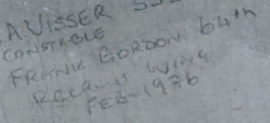 A VISSER
CONSTABLE
FRANK GORDON 64TH
RECRUIT WING
FEB-1976